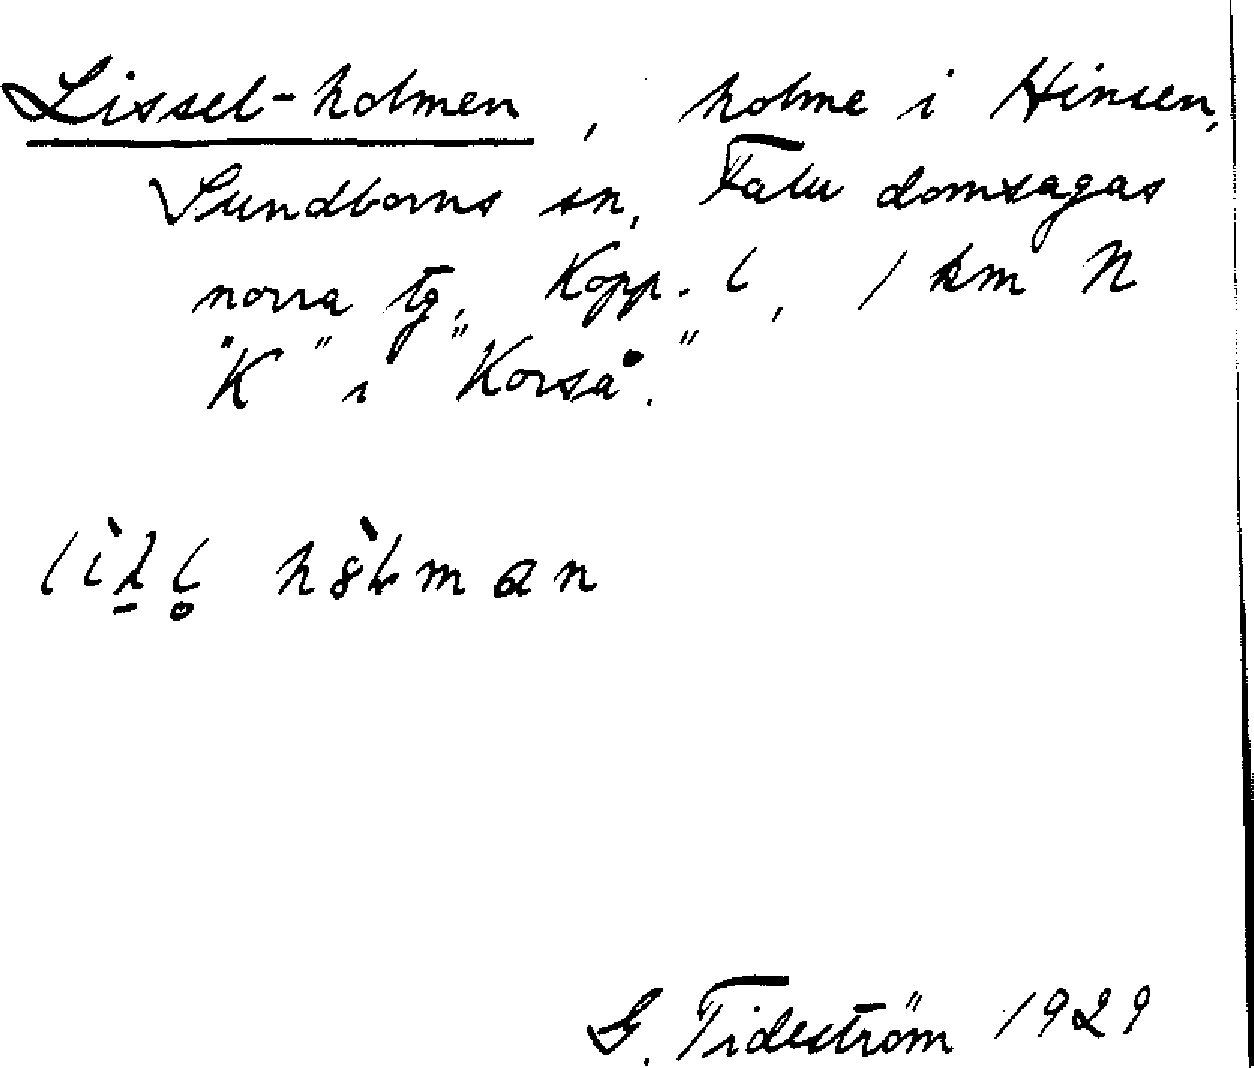 Lissel-holmen, holme i Hinsen,
Sundborns sn, Falu domsagas
norra tg, Kopp. l, 1 km N
"K" i "Korså."
G. Tideström 1929